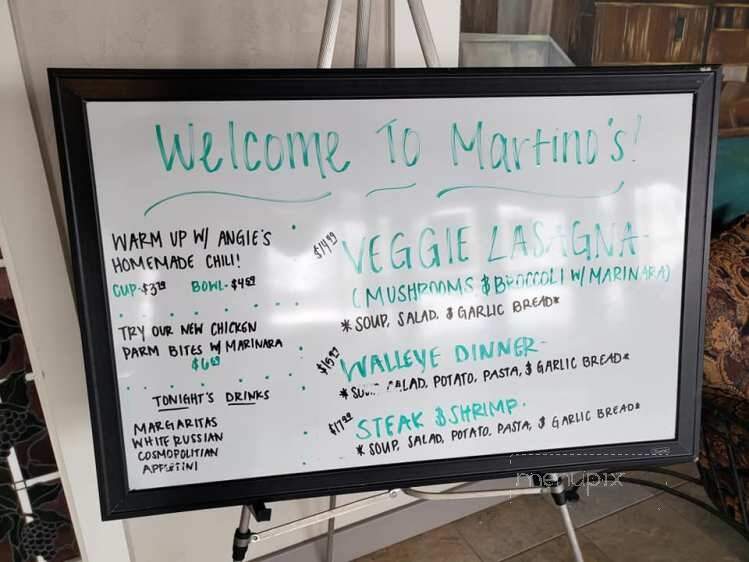 Welcome To Martino's!
WARM UP W/ ANGIE'S
HOMEMADE CHILI!
CUP-$3 BOWL-$4
TRY OUR NEW CHICKEN
PARM BITES W/ MARINARA
$6
TONIGHT'S DRINKS
MARGARITAS
WHITE RUSSIAN
COSMOPOLITIAN
APPLETINI
$14.99 VEGGIE LASAGNA-
(MUSHROOMS & BROCCOLI W/ MARINARA)
*SOUP, SALAD, & GARLIC BREAD*
$15.99 WALLEYE DINNER-
*SOUP, SALAD, POTATO, PASTA, & GARLIC BREAD*
$17.99 STEAK & SHRIMP-
*SOUP, SALAD, POTATO, PASTA, & GARLIC BREAD*
menupix